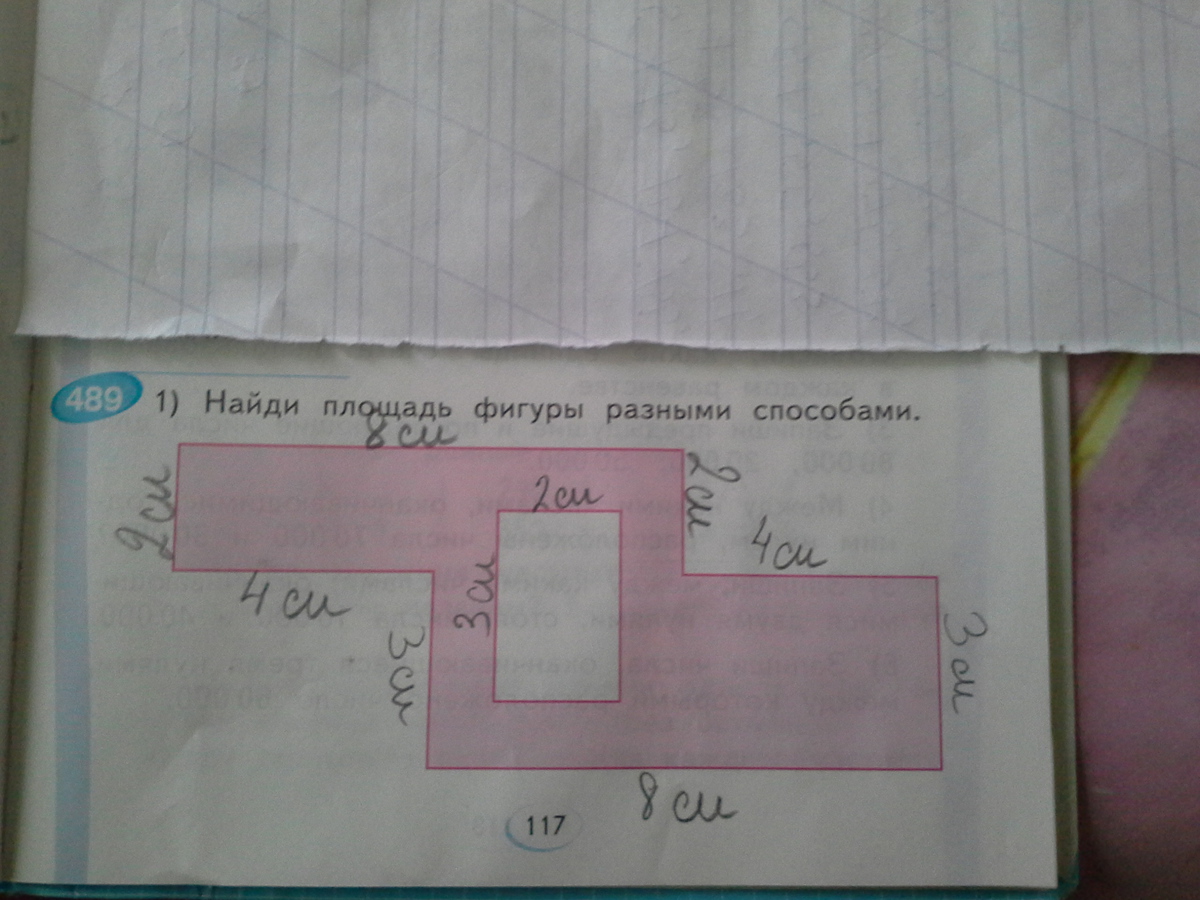 489 1) Найди площадь фигуры разными способами.
8 см
2 см
2 см
2 см
4 см
4 см
3 см
3 см
3 см
8 см
117